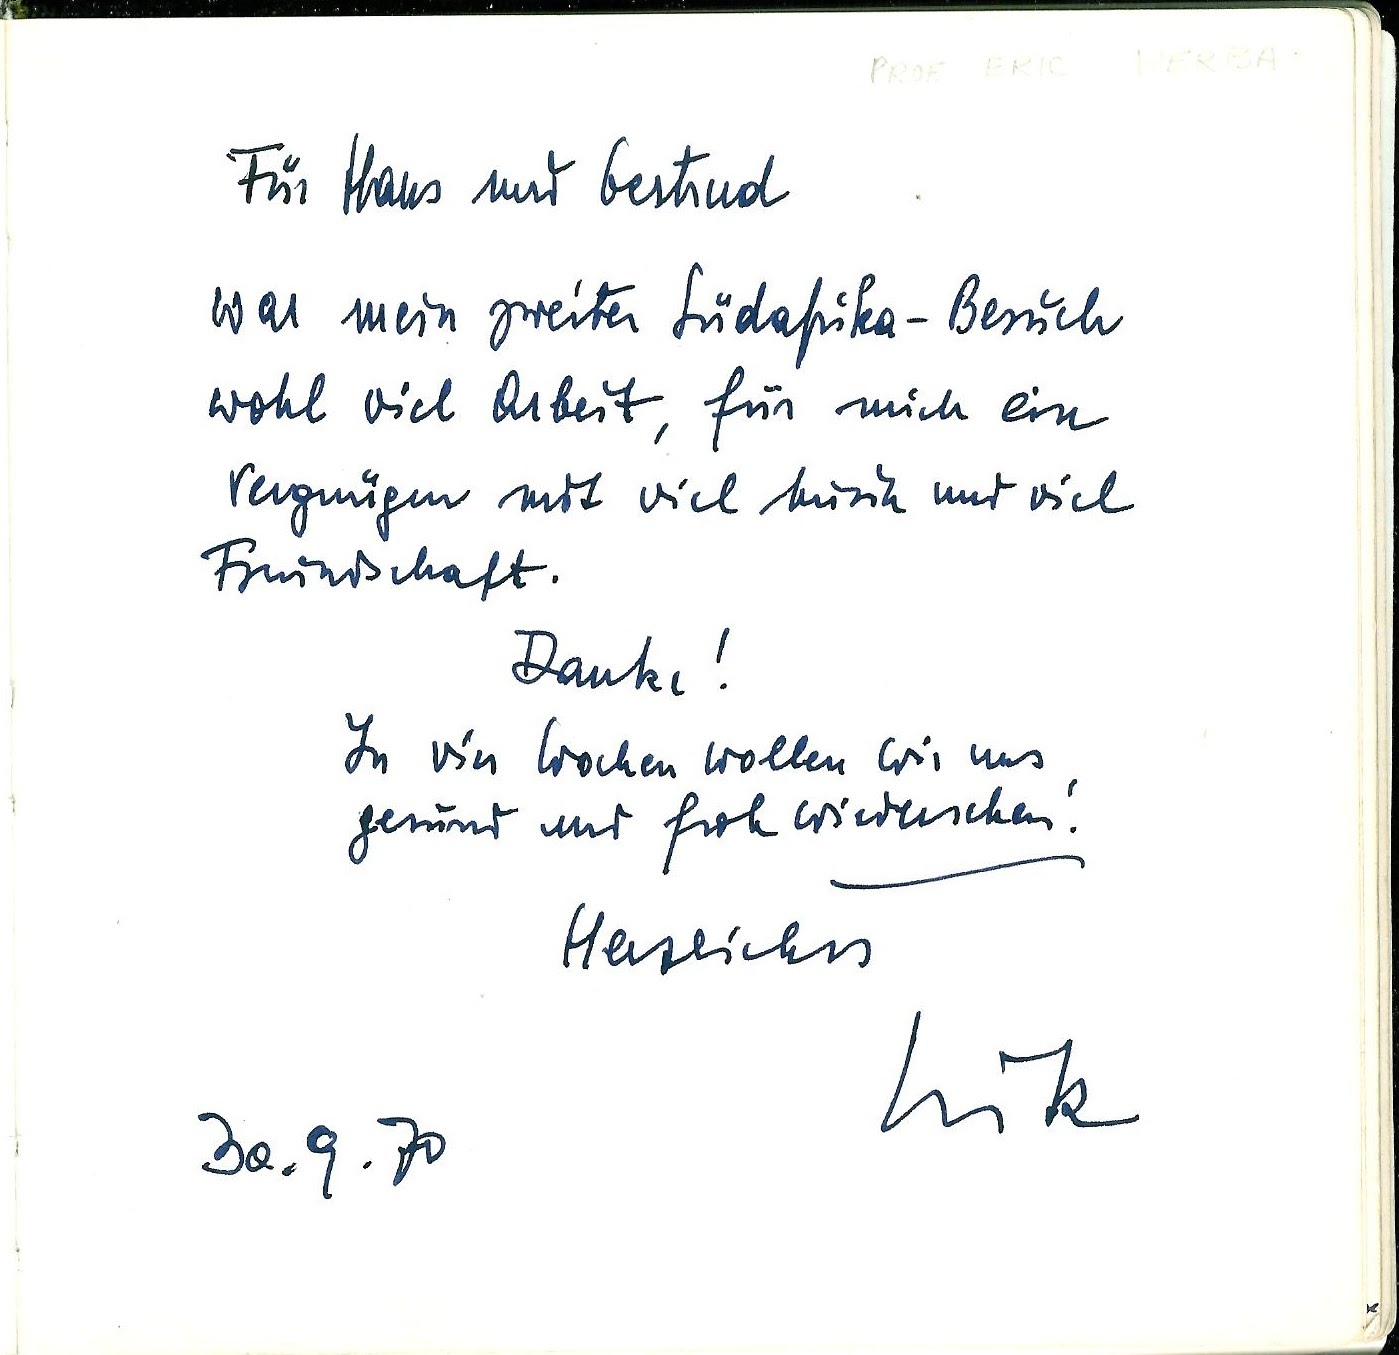 PROF ERIC WERBA
Für Hans und Gertrud
war mein zweiter Südafrika-Besuch
wohl viel Arbeit, für mich ein
Vergnügen mit viel Musik und viel
Freundschaft.
Danke!
In vier Wochen wollen wir uns,
gesund und froh wiedersehen!
Herzlichst
Erik
30.9.70